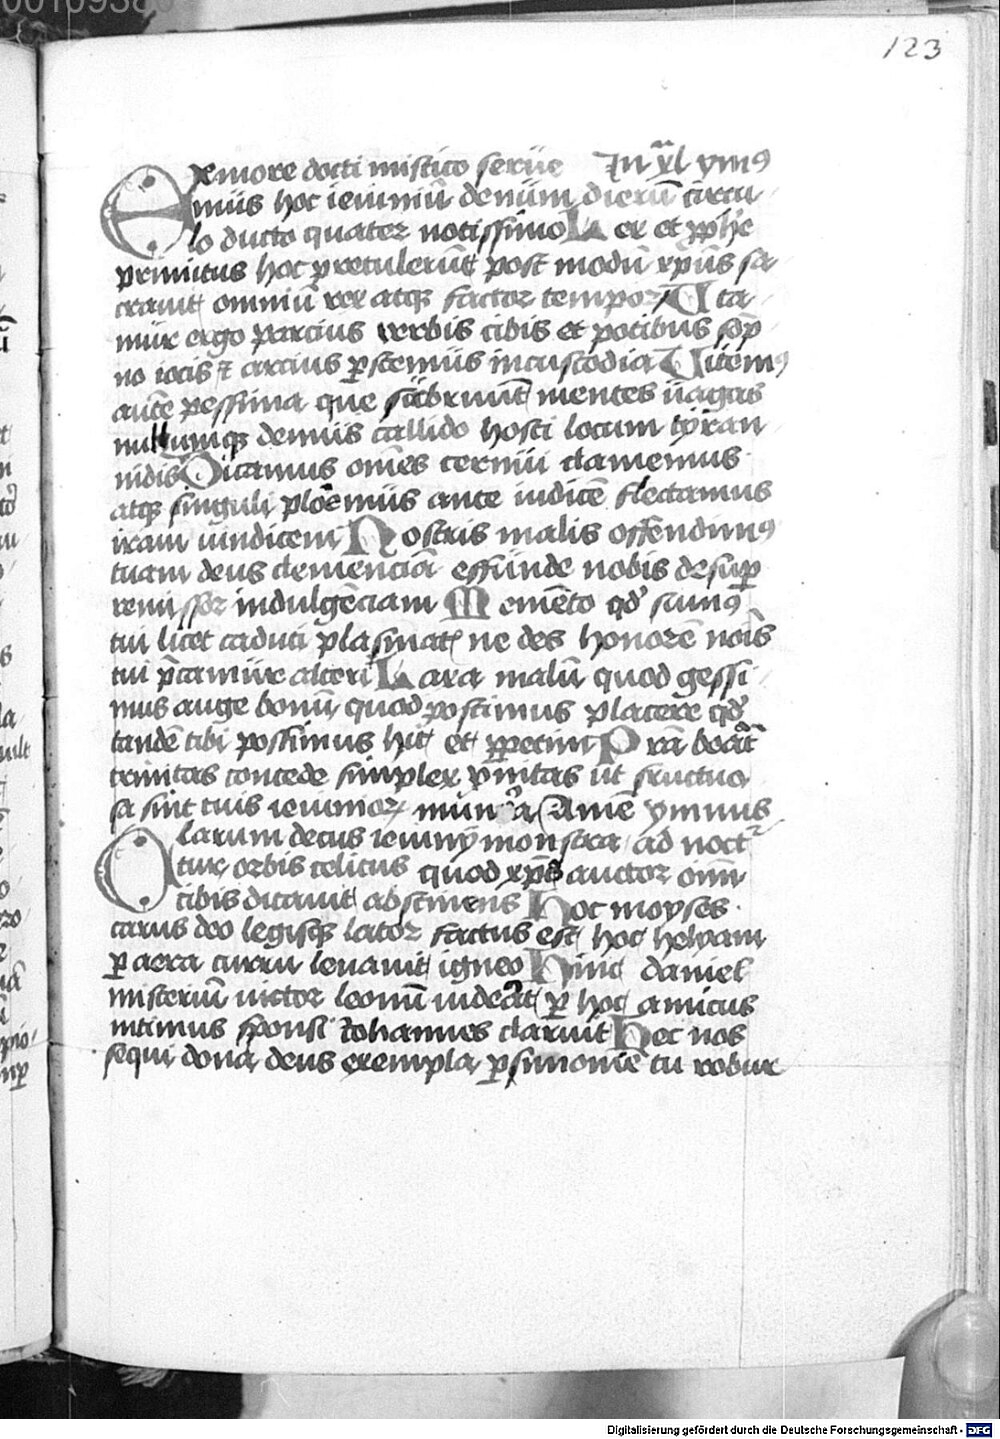 123
Ex more docti mistico serue In xl ymꝰ
mus hoc ieiuniū denum dierū circu
lo ducto quater notissimo Lex et ꝓphe
primitus hoc pretulerūt post modū xp̄us sa
crauit omniū rex atqꝫ factor tempoꝝ Uta
mur ergo parcius verbis cibis et potibus sōp
no iocis ⁊ arcius ꝑstemus in custodia Uitemꝰ
autē pessima que subruūt mentes uagas
nullumqꝫ demus callido hosti locum tyran
nidis Dicamus om̄es cernui clamemus
atqꝫ singuli ploremus ante iudicē flectamus
iram uindicem Nostris malis offendimꝰ
tuam deus clemenciā effunde nobis desuꝑ
remissor indulgēciam Memēto qđ sumꝰ
tui licet caduci plasmatꝭ ne des honorē noīs
tui p̄camur alteri Laxa malū quod gessi
mus auge bonū quod poscimus placere qđ
tandē tibi possimus hic et ꝑpetim Pr̄a beāt
trinitas concede simplex vnitas ut fructuo
sa sint tuis ieiunioꝝ munera Amē ymnus
Clarum decus ieiunÿ monstra ad noct
tur orbis celicus quod xp̄s auctor om̄
cibis dicauit abstinens Hoc moyses
carus deo legisqꝫ lator factus est hoc helyam
ꝑ aera curru leuauit igneo Hinc daniel
misteriū uictor leonū uiderat ꝑ hoc amicus
intimus sponsi Iohannes claruit Hec nos
sequi dona deus exempla ꝑsimonie tu robur
Digitalisierung gefördert durch die Deutsche Forschungsgemeinschaft - DFG